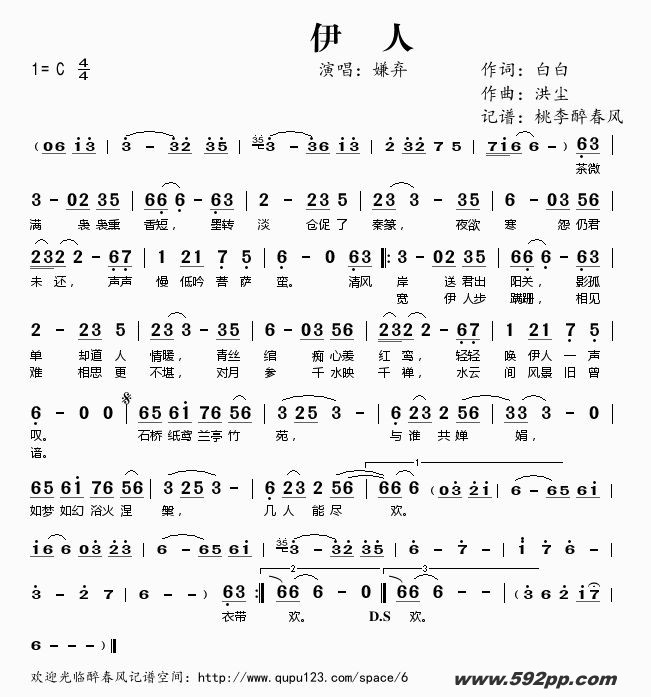 伊 人
1= C 4/4 演唱：嫌弃 作词：白白
作曲：洪尘
记谱：桃李醉春风
(06 i3 | 3 - 32 35 | 35 3 - 36 i3 | 2 32 7 5 | 7i6 6 - ) 63 |
茶微
3 - 02 35 | 66 6 - 63 | 2 - 23 5 | 23 3 - 35 | 6 - 03 56 |
满 袅袅熏 香短， 墨转 淡 仓促了 秦篆， 夜欲 寒 怨仍君
232 2 - 67 | 1 21 7 5 | 6 - 0 63 |: 3 - 03 35 | 66 6 - 63 |
未还， 声声 慢 低吟 菩 萨 蛮。 清风 岸 送君出 阳关， 影孤
宽 伊人步 蹒跚， 相见
2 - 23 5 | 23 3 - 35 | 6 - 03 56 | 232 2 - 67 | 1 21 7 5 |
单 却道人 情暖， 青丝 绾 痴心羡 红鸾， 轻轻 唤 伊人 一 声
难 相思更 不堪， 对月 参 千水映 千禅， 水云 间 风景 旧 曾
6 - 0 0 | 65 6i 76 56 | 3 25 3 - | 6 23 2 56 | 33 3 - 0 |
叹。 石桥 纸鸢 兰亭 竹 苑， 与谁 共婵 娟，
谙。
65 6i 76 56 | 3 25 3 - | 6 23 2 56 | 1 66 6 (03 2i | 6 - 65 6i |
如梦 如幻 浴火 涅 槃， 几人 能尽 欢。
i6 6 03 23 | 6 - 65 6i | 35 3 - 32 35 | 6 - 7 - | i 7 6 - |
3 - 2 7 | 6 - - ) 63 :| 2 66 6 - 0 :| 3 66 6 - - | (3 6 2 i7 |
衣带 欢。 D.S 欢。
6 - - - )||
欢迎光临醉春风记谱空间：http://www.qupu123.com/space/6
www.592pp.com